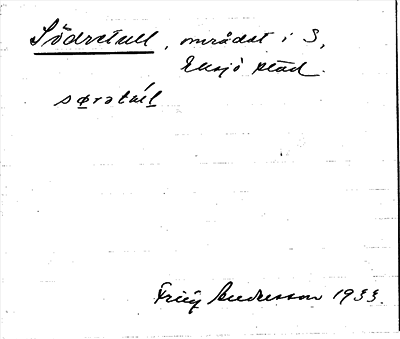 Södretull, området i S,
Eksjö stad.
sørətul̄l
Andersson 1933.